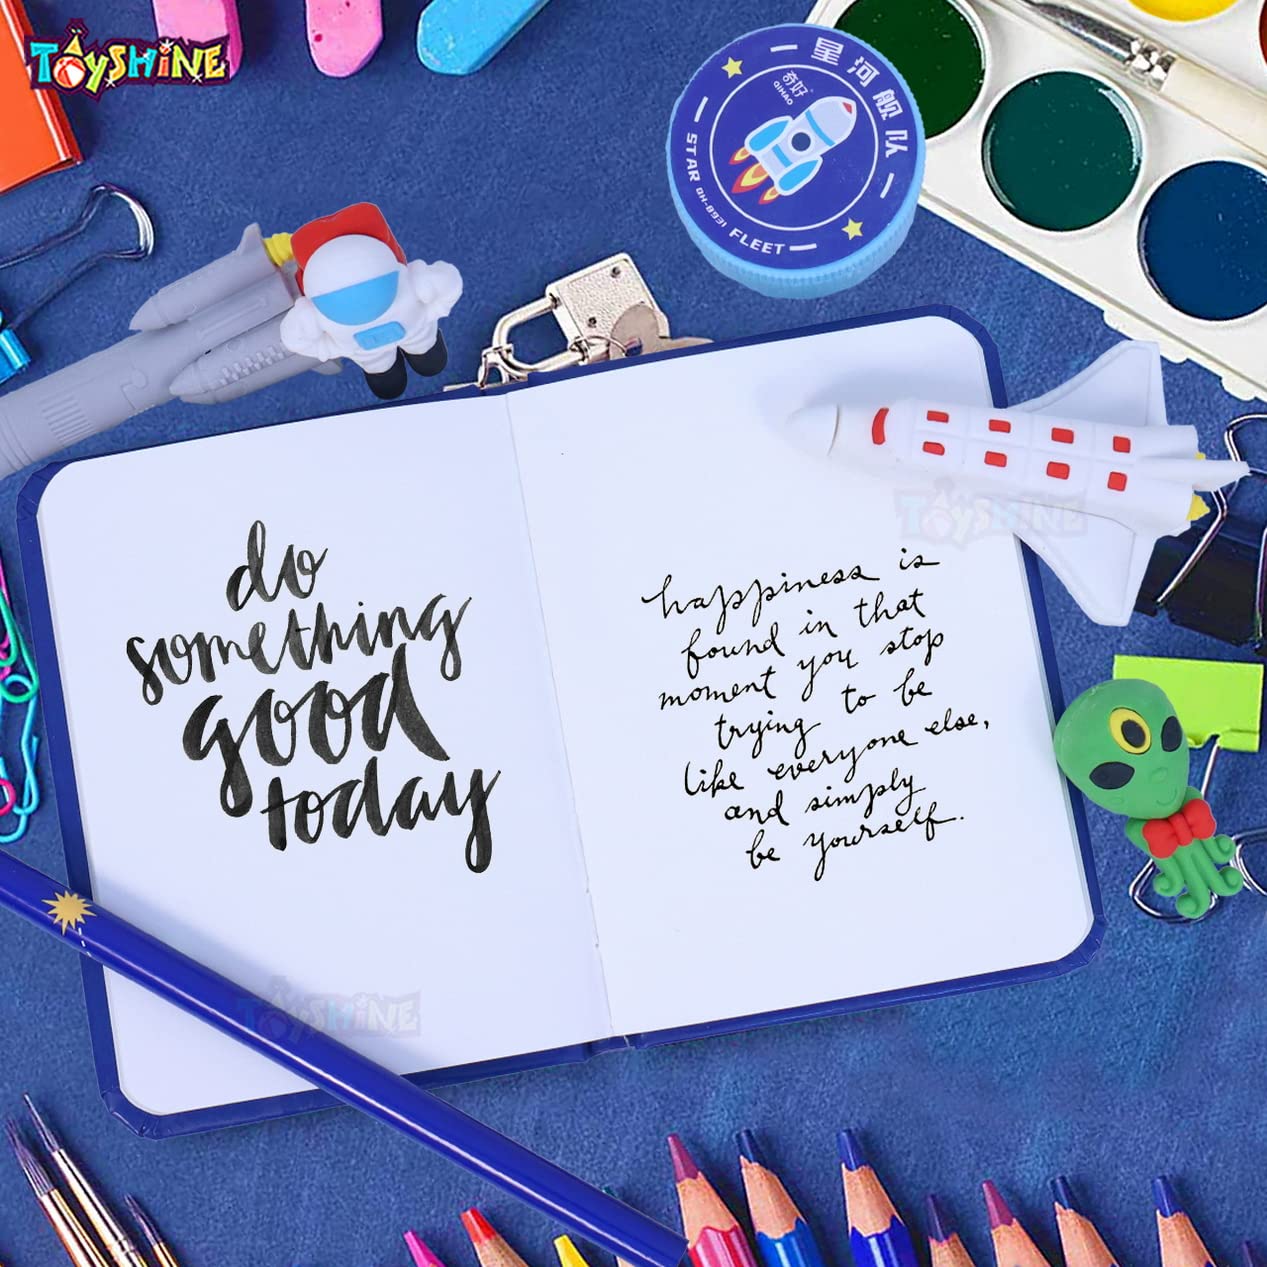 TOYSHINE
一星河舰队一
奇好
QIHAO
STAR QH-8931 FLEET
do
something
good
today
happiness is
found in that
moment you stop
trying to be
like everyone else,
and simply
be yourself.
TOYSHINE
TOYSHINE